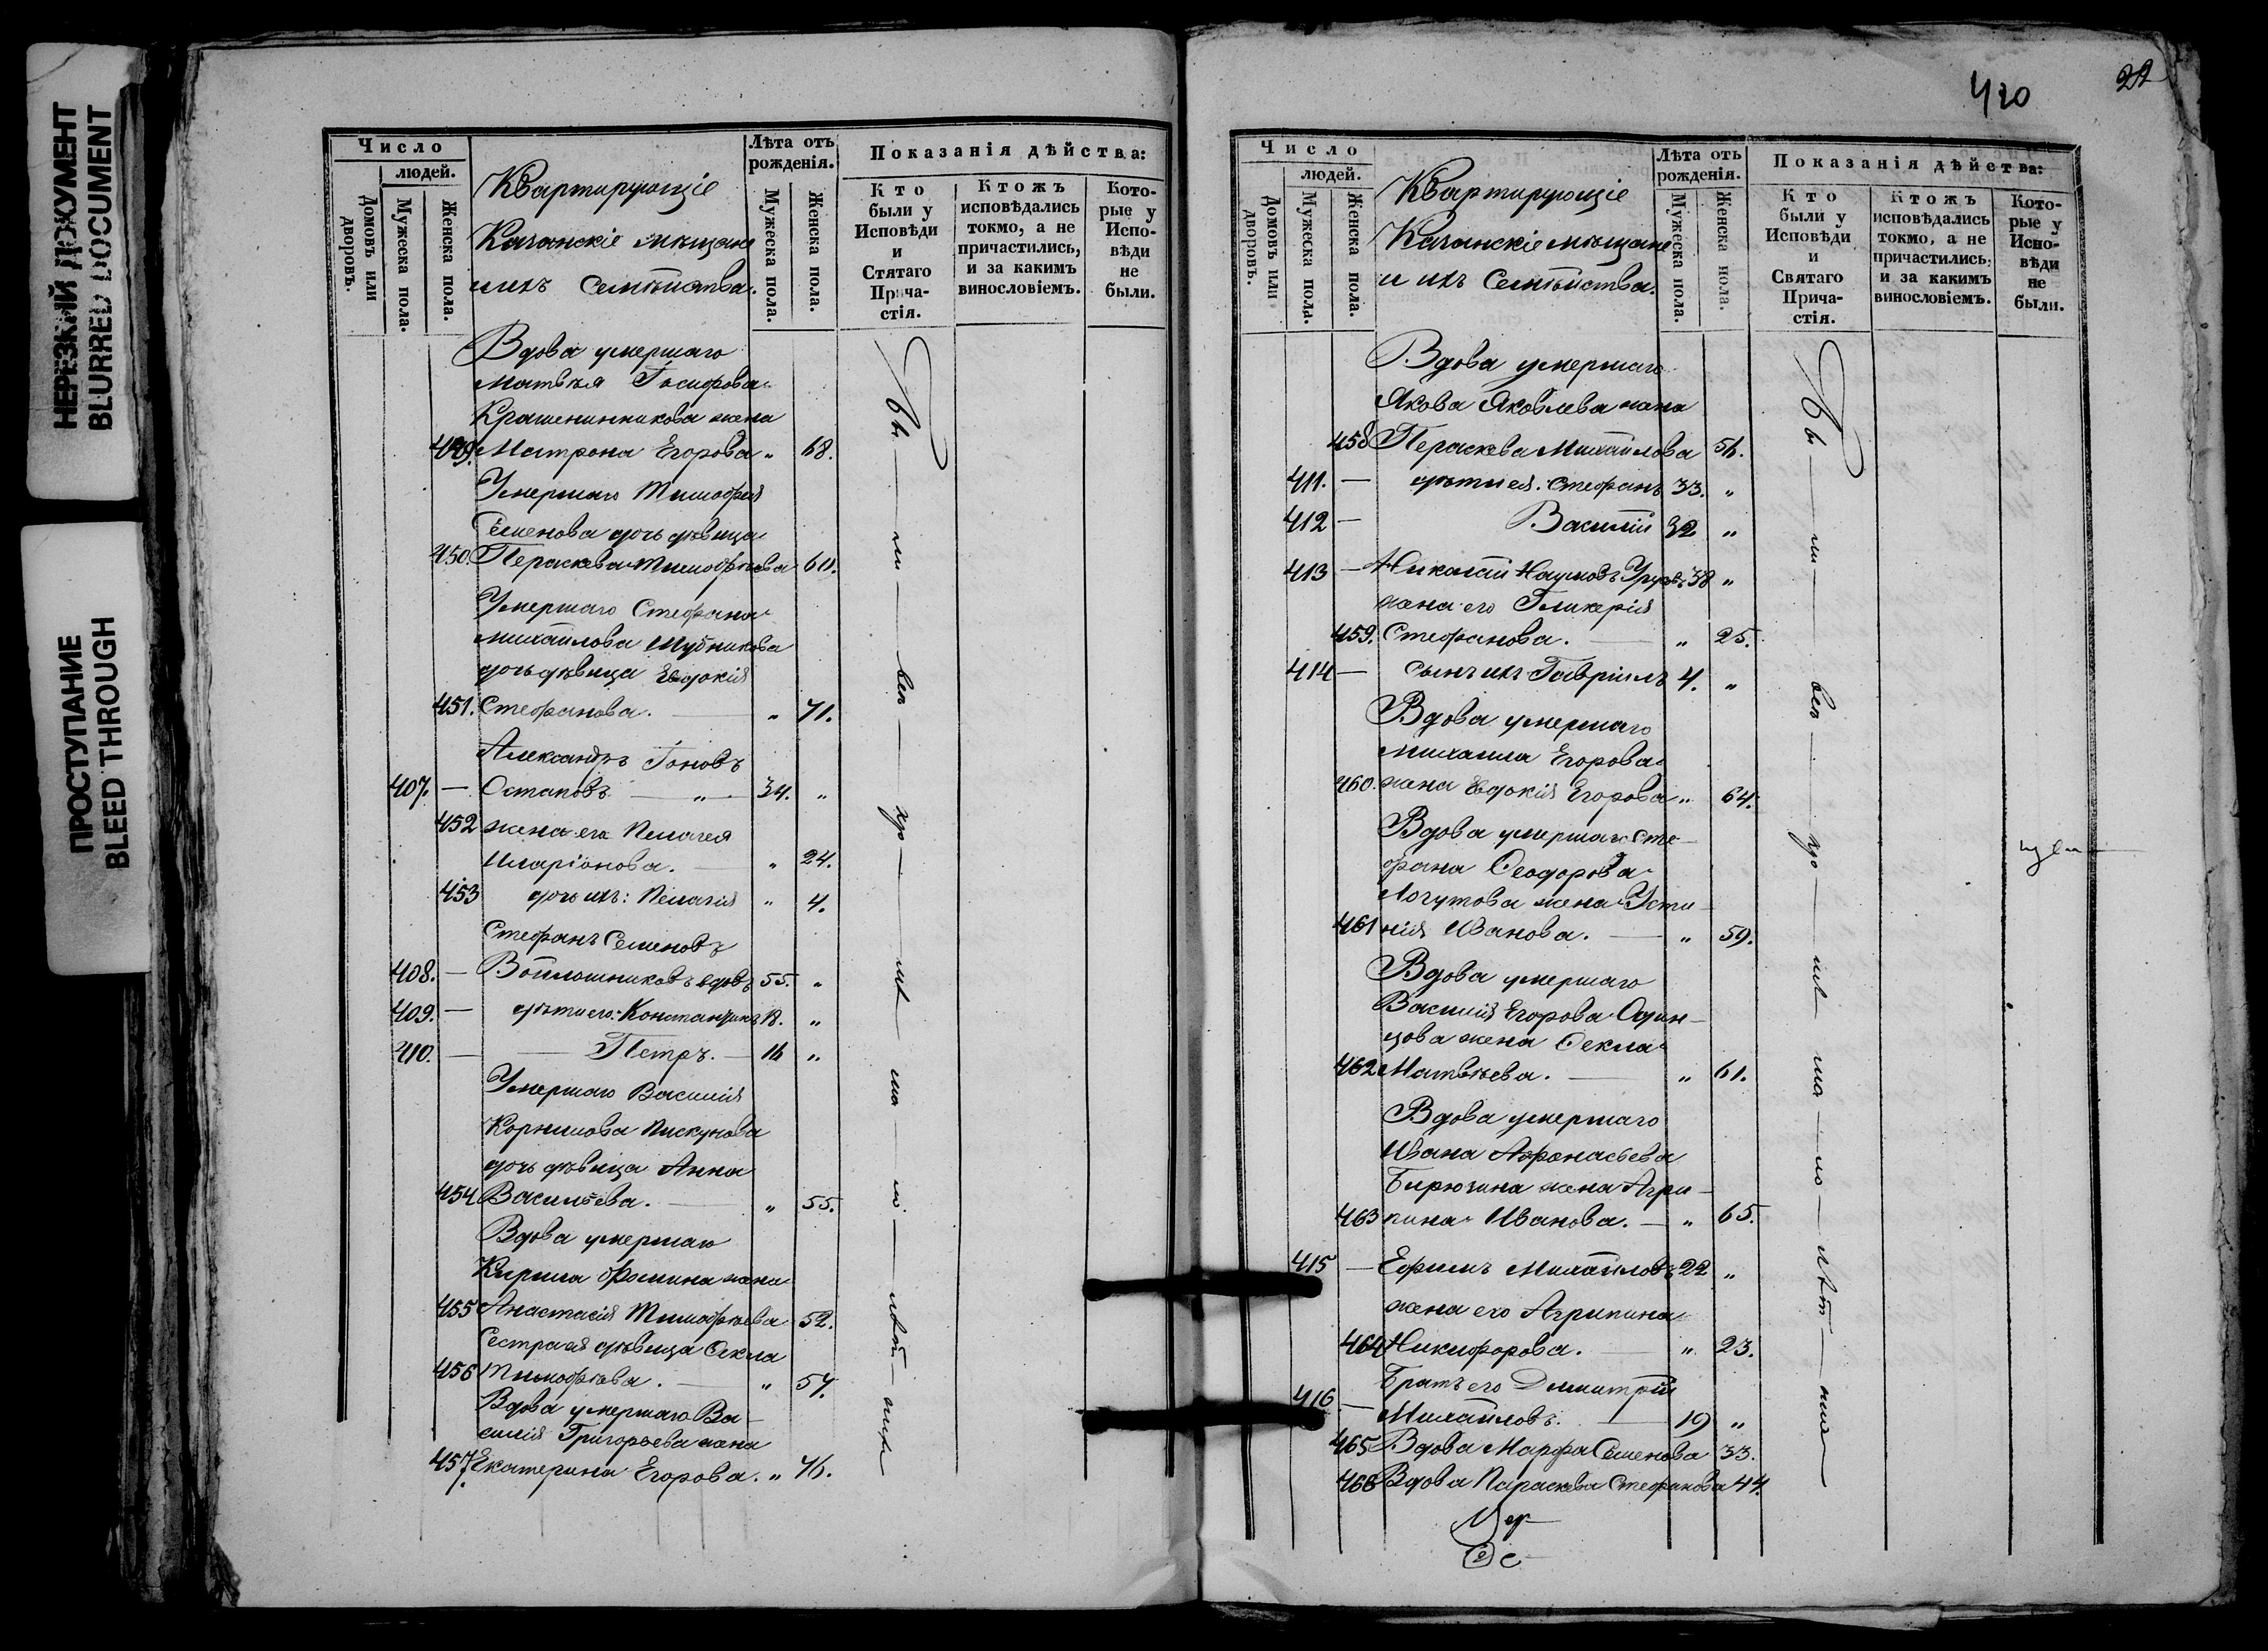 НЕРЕЗКИЙ ДОКУМЕНТ
BLURRED DOCUMENT
ПРОСТУПАНИЕ
BLEED THROUGH
Число
людей.
Домовъ или дворовъ.
Мужеска пола.
Женска пола.
Квартирующіе
Казанскіе мѣщане
и ихъ Семѣйства.
Лѣта отъ рожденія.
Мужеска пола.
Женска пола.
Показанія дѣйства:
Кто были у Исповѣди и Стятаго Прича-стія.
Ктожъ исповѣдались токмо, а не причастились, и за какимъ винословіемъ.
Кото-рые у Испо-вѣди не были.
Вдова умершаго
Матвѣя Іосифова
Крашенинникова жена
449. Матрона Егорова „ 68.
Умершаго Тимофея
Семенова дочь дѣвица
450. Пераскева Тимофѣева 60.
Умершаго Стефана
Михайлова Шубникова
дочь дѣвица Евдокія
451. Стефанова. — „ 71.
Александръ Іоновъ
407. — Остаповъ — „ — 34. „
452 жена его Пелагея
Иларіонова. — „ 24.
453 дочь ихъ: Пелагія „ 4.
Стефанъ Семеновъ
408. — Войлошниковъ вдовъ 55. „
409. — дѣти его: Константинъ 18. „
410. — Петръ. — 16 „
Умершаго Василія
Корнилова Пискунова
дочь дѣвица Анна
454 Васильева. — „ 55.
Вдова умершаго
Кирила Фомина жена
455 Анастасія Тимофѣева 52.
Сестра ея дѣвица Ѳекла
456 Тимофѣева. — „ 57.
Вдова умершаго Ва-
силія Григорьева жена
457. Екатерина Егорова. „ 76.
420
22
Число
людей.
Домовъ или дворовъ.
Мужеска пола.
Женска пола.
Квартирующіе
Казанскіе мѣщане
и ихъ Семѣйства.
Лѣта отъ рожденія.
Мужеска пола.
Женска пола.
Показанія дѣйства:
Кто были у Исповѣди и Святаго Прича-стія.
Ктожъ исповѣдались токмо, а не причастились, и за какимъ винословіемъ.
Кото-рые у Испо-вѣди не были.
Вдова умершаго
Якова Яковлева жена
458 Пераскева Михайлова 56.
411. — дѣти ея: Стефанъ 33. „
412 — Василій 32 „
413 — Николай Наумовъ 38 „
жена его Гликерія
459. Стефанова. — „ 25.
414 — сынъ ихъ Гавріилъ 4. „
Вдова умершаго
Михаила Егорова
460. жена Евдокія Егорова „ 64.
Вдова умершаго Сте-
фана Ѳеодорова
Логутова жена Усти-
461 нія Иванова. — „ 59.
Вдова умершаго
Василія Егорова Один-
цова жена Ѳекла
462 Матвѣева. — „ 61.
Вдова умершаго
Ивана Афонасьева
Бирючина жена Агри-
463 пина Иванова. — „ 65.
415 — Ефимъ Михайловъ 22 „
жена его Агрипина
464 Никифорова. — „ 23.
Братъ его Димитрій
416 — Михайловъ. — 19 „
465 Вдова Марфа Семенова 33.
466 Вдова Параскева Стефанова 44.